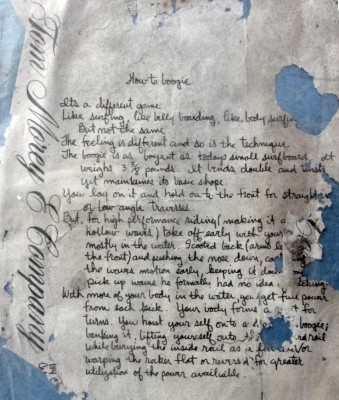 Tom Morey & Company
How to boogie
Its a different game.
Like surfing, like belly boarding, like body surfing
But not the same
The feeling is different and so is the technique
The boogie is as boyant as todays small surfboard
weighs 3 pounds. It bends double and
yet maintains its basic shape.
You lay on it and hold on to the front for straight
or low angle traverses.
But, for high performance riding (making it
hollow waves) take off early with your
mostly in the water. Scooted back (arms
the front) and pushing the nose down,
the waves motion early, keeping it down
pick up waves he formally had no idea
With more of your body in the water you get full power
from each kick. Your body forms a for
turns. You hoist your self onto a boogie;
banking it, lifting yourself onto rail
while burying the inside rail as a
warping the rocker flat or reversed for greater
utilization of the power available.